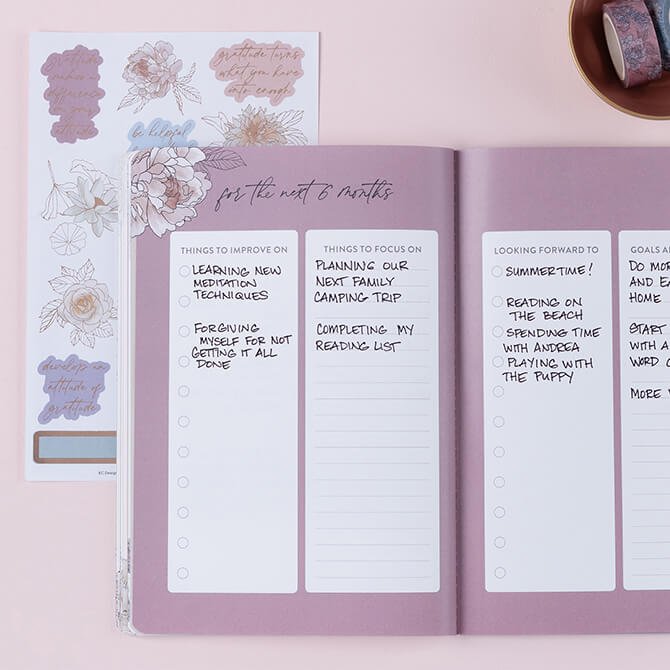 gratitude
makes a
difference
in your
attitude
gratitude turns
what you have
into enough
be helpful
develop an
attitude of
gratitude
for the next 6 months
THINGS TO IMPROVE ON
LEARNING NEW
MEDITATION
TECHNIQUES
FORGIVING
MYSELF FOR NOT
GETTING IT ALL
DONE
THINGS TO FOCUS ON
PLANNING OUR
NEXT FAMILY
CAMPING TRIP
COMPLETING MY
READING LIST
LOOKING FORWARD TO
SUMMERTIME!
READING ON
THE BEACH
SPENDING TIME
WITH ANDREA
PLAYING WITH
THE PUPPY
GOALS
DO MOR
AND EA
HOME
START
WITH A
WORD
MORE